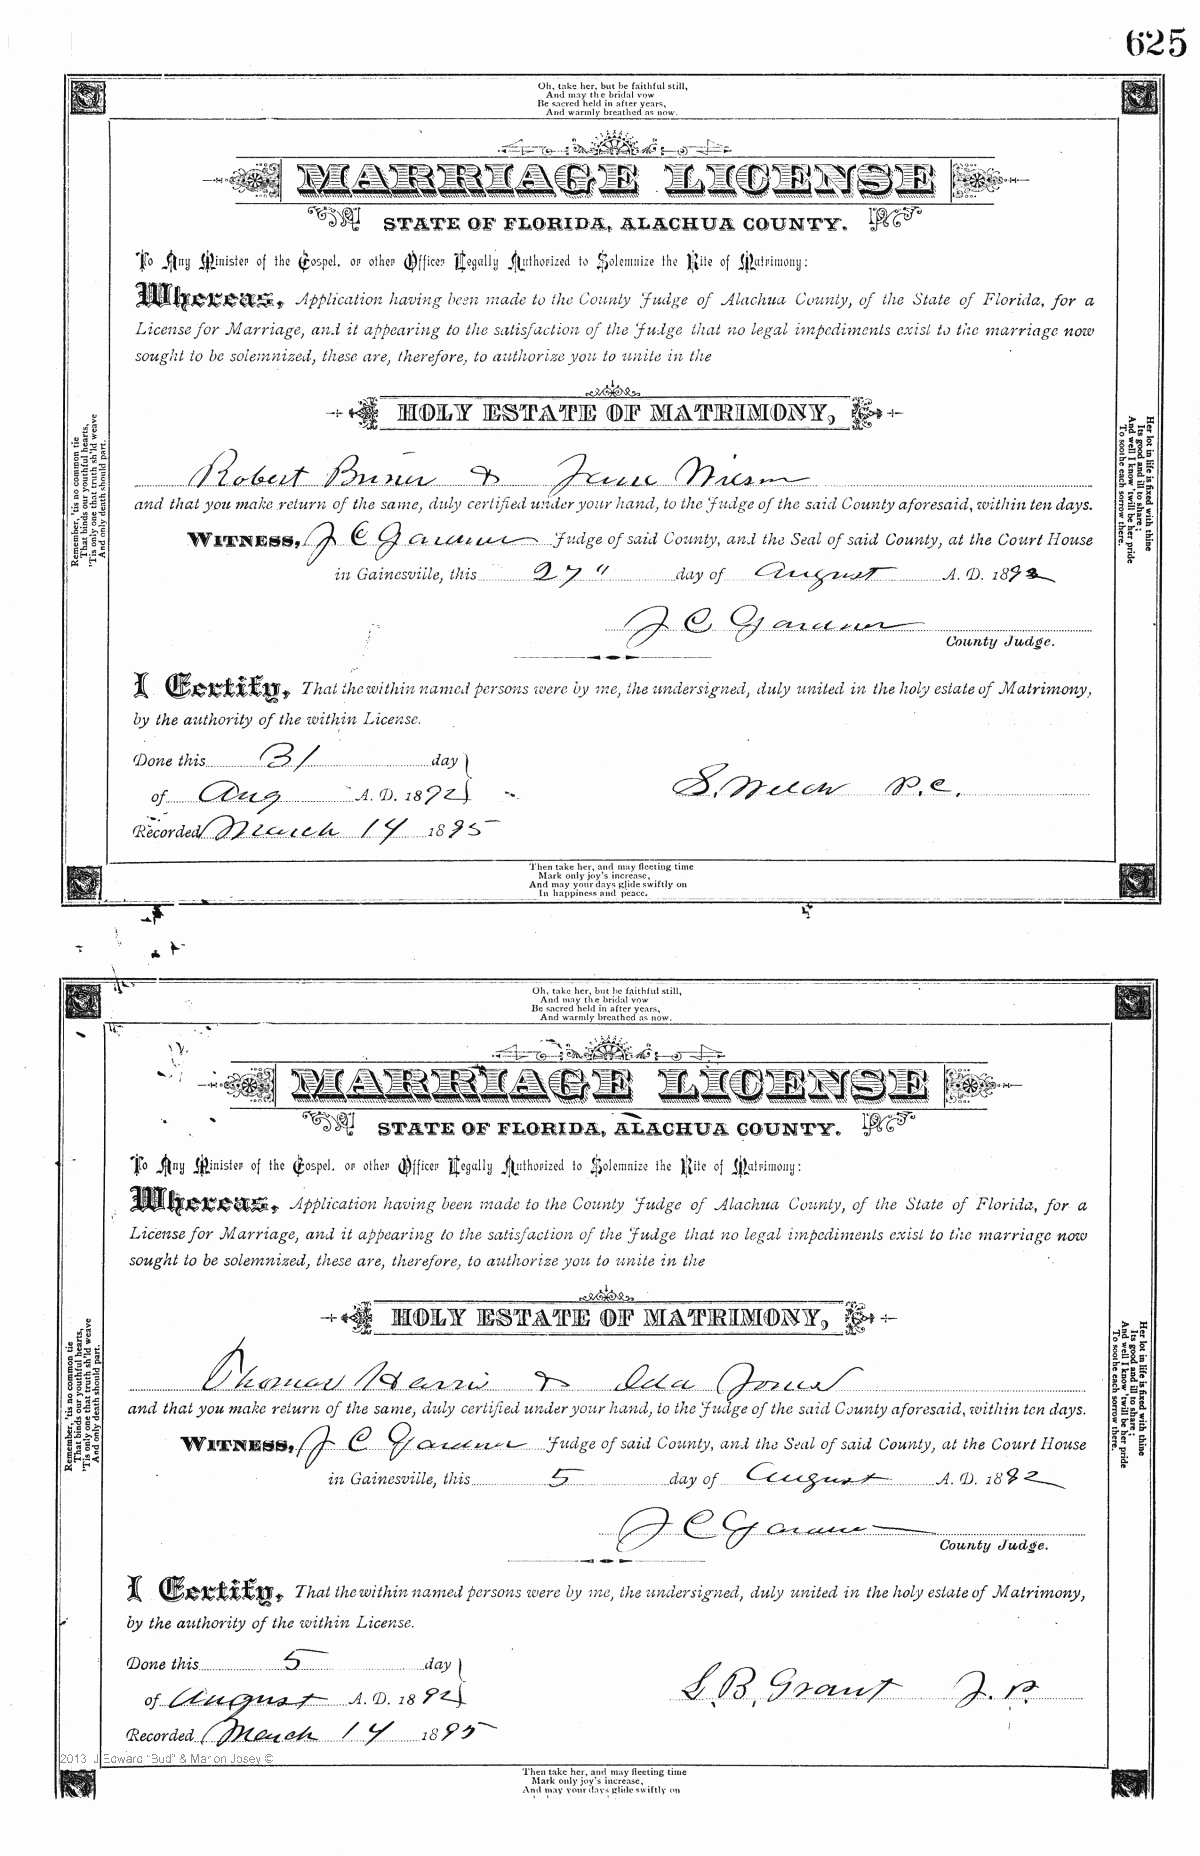 625
Oh, take her, but be faithful still,
And may the bridal vow
Be sacred held in after years,
And warmly breathed as now.
MARRIAGE LICENSE
STATE OF FLORIDA, ALACHUA COUNTY.
To Any Minister of the Gospel, or other Officer Legally Authorized to Solemnize the Rite of Matrimony:
Whereas, Application having been made to the County Judge of Alachua County, of the State of Florida, for a
License for Marriage, and it appearing to the satisfaction of the Judge that no legal impediments exist to the marriage now
sought to be solemnized, these are, therefore, to authorize you to unite in the
HOLY ESTATE OF MATRIMONY,
Robert & Jane Wilson
and that you make return of the same, duly certified under your hand, to the Judge of the said County aforesaid, within ten days.
WITNESS, J C Gardner Judge of said County, and the Seal of said County, at the Court House
in Gainesville, this 27" day of August A. D. 1892
J C Gardner
County Judge.
I Certify, That the within named persons were by me, the undersigned, duly united in the holy estate of Matrimony,
by the authority of the within License.
Done this 31 day
of Aug A. D. 1892
S. Welch P.C.
Recorded March 14 1895
Then take her, and may fleeting time
Mark only joy's increase,
And may your days glide swiftly on
In happiness and peace.
Remember, 'tis no common tie
That binds our youthful hearts,
'Tis only one that truth sh'ld weave
And only death should part.
Her lot in life is fixed with thine
Its good and ill to share;
And well I know 'twill be her pride
To soothe each sorrow there.
Oh, take her, but be faithful still,
And may the bridal vow
Be sacred held in after years,
And warmly breathed as now.
MARRIAGE LICENSE
STATE OF FLORIDA, ALACHUA COUNTY.
To Any Minister of the Gospel, or other Officer Legally Authorized to Solemnize the Rite of Matrimony:
Whereas, Application having been made to the County Judge of Alachua County, of the State of Florida, for a
License for Marriage, and it appearing to the satisfaction of the Judge that no legal impediments exist to the marriage now
sought to be solemnized, these are, therefore, to authorize you to unite in the
HOLY ESTATE OF MATRIMONY,
Thomas Harris & Ida Jones
and that you make return of the same, duly certified under your hand, to the Judge of the said County aforesaid, within ten days.
WITNESS, J C Gardner Judge of said County, and the Seal of said County, at the Court House
in Gainesville, this 5 day of August A. D. 1892
J C Gardner
County Judge.
I Certify, That the within named persons were by me, the undersigned, duly united in the holy estate of Matrimony,
by the authority of the within License.
Done this 5 day
of August A. D. 1892
S. B. Grant J. P.
Recorded March 14 1895
2013 J Edward "Bud" & Marion Josey ©
Then take her, and may fleeting time
Mark only joy's increase,
And may your days glide swiftly on
Remember, 'tis no common tie
That binds our youthful hearts,
'Tis only one that truth sh'ld weave
And only death should part.
Her lot in life is fixed with thine
Its good and ill to share;
And well I know 'twill be her pride
To soothe each sorrow there.